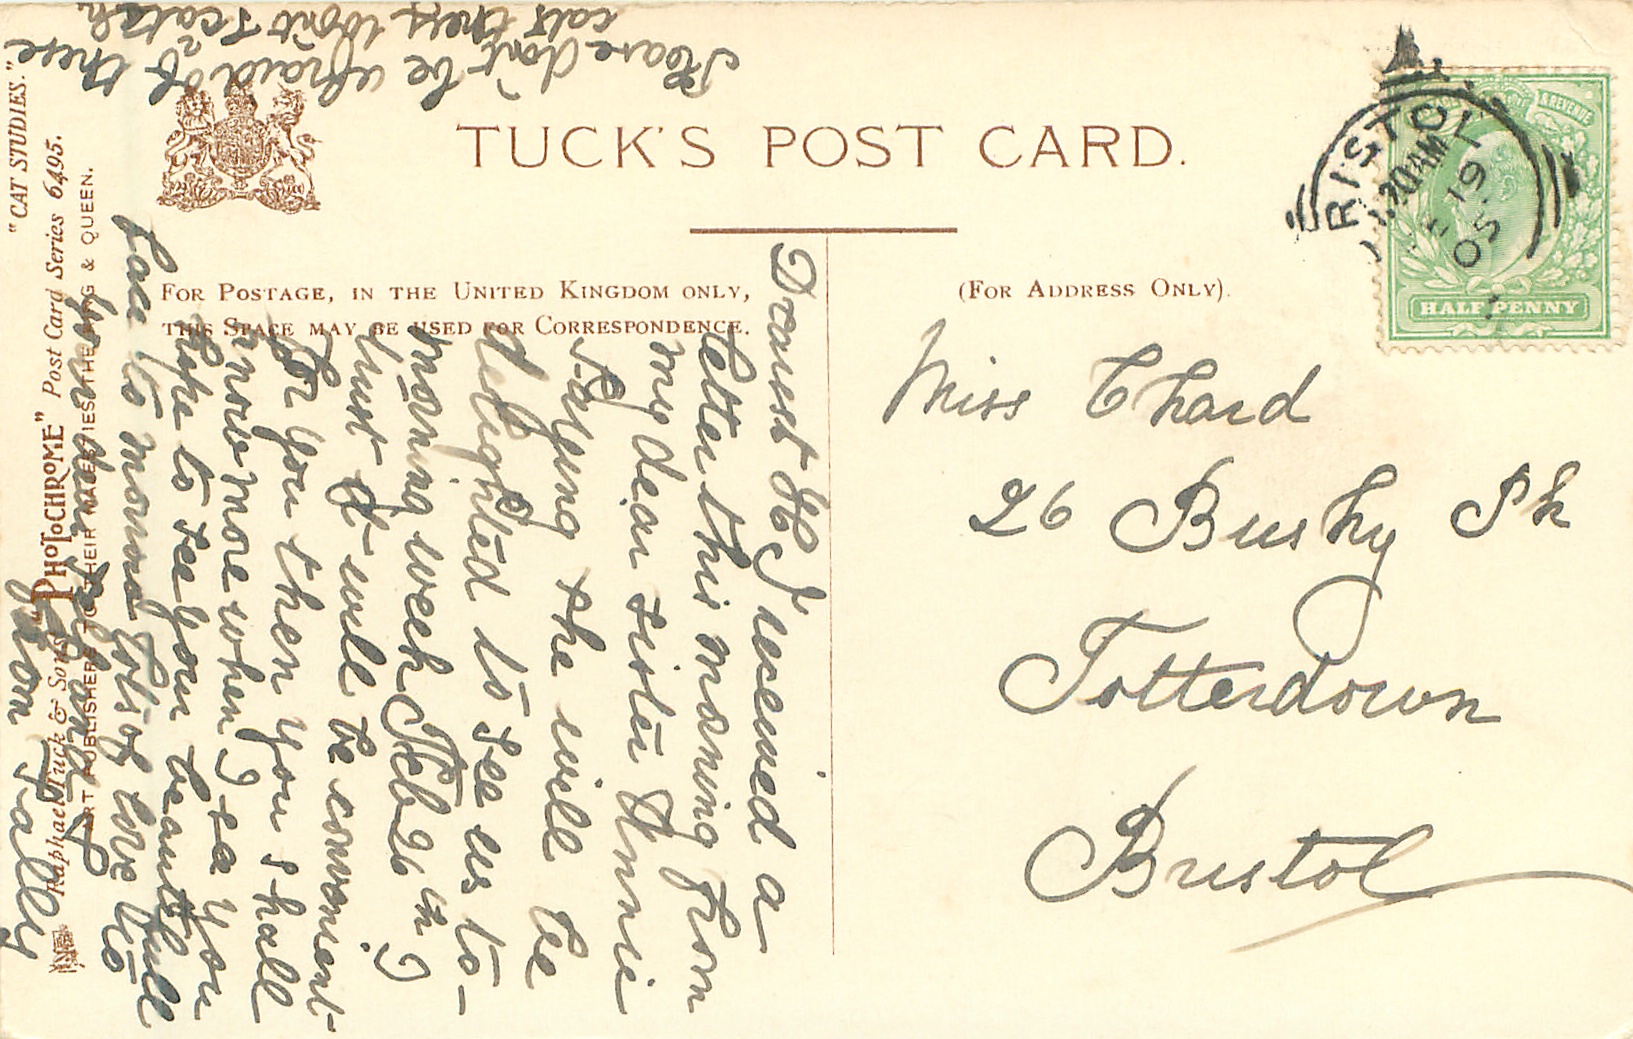 TUCK'S POST CARD.
FOR POSTAGE, IN THE UNITED KINGDOM ONLY,
THIS SPACE MAY BE USED FOR CORRESPONDENCE.
(FOR ADDRESS ONLY).
BRISTOL
.30AM
FE 19
05
& REVENUE
HALFPENNY
Miss Chard
26 Bushy Pk
Totterdown
Bristol
Dearest H I received a
letter this morning from
my dear sister Annie
saying she will be
delighted to see us to-
morning week Feb 26th I
trust it will be convenient
for you then you shall
know more when I see you
hope to see your beautiful
face to morrow lots of love to
you dear
from Talley
Please don't be afraid of these
cats they won't scratch
"CAT STUDIES."
Raphael Tuck & Sons' "PHOTOCHROME" Post Card Series 6495.
ART PUBLISHERS TO THEIR MAJESTIES THE KING & QUEEN.